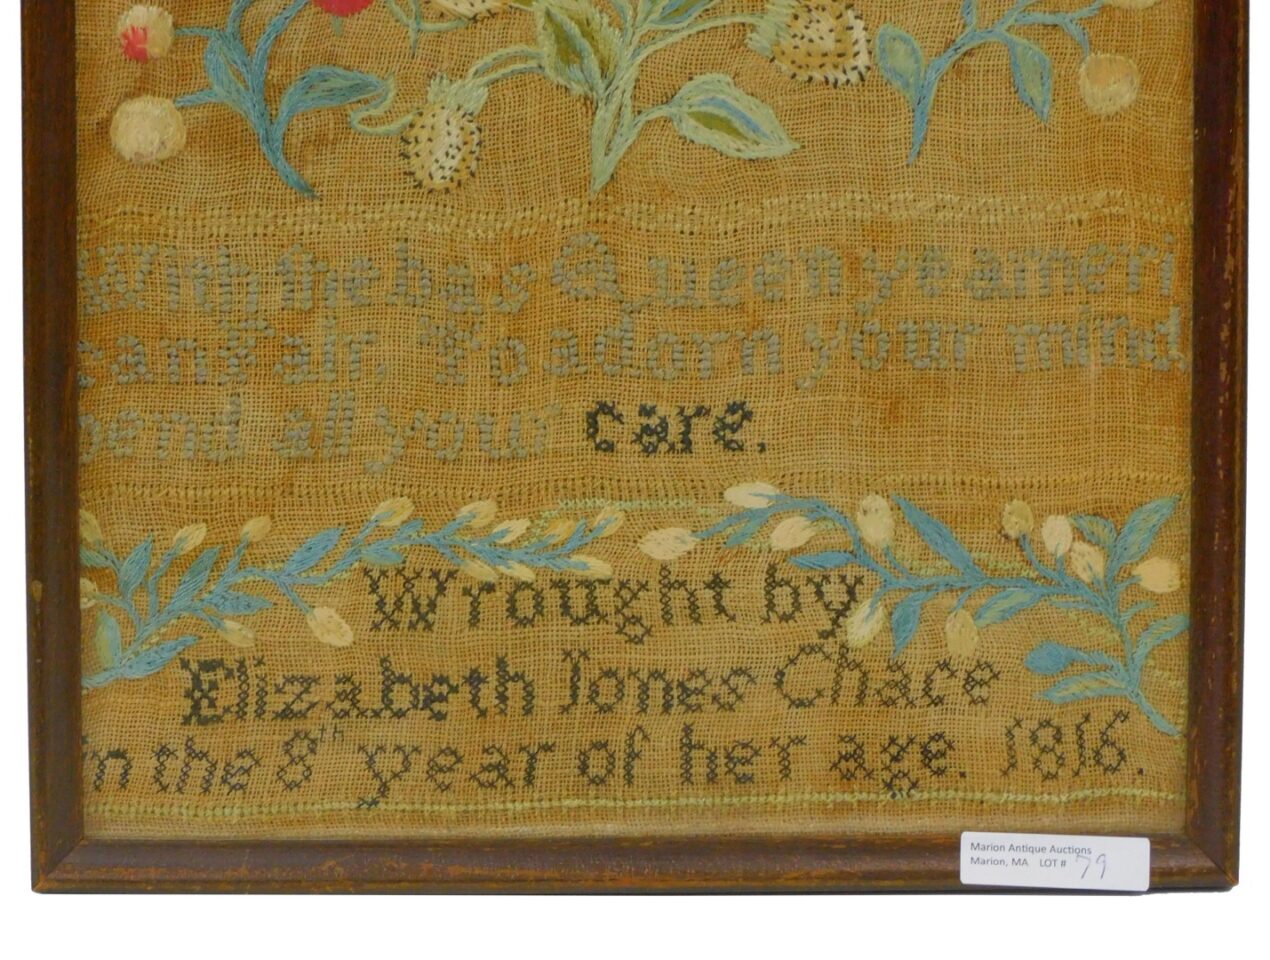 With the bas Queen ye ameri
can Fair, To adorn your mind
pend all your care.
Wrought by
Elizabeth Jones Chace
in the 8th year of her age. 1816.
Marion Antique Auctions
Marion, MA LOT # 79